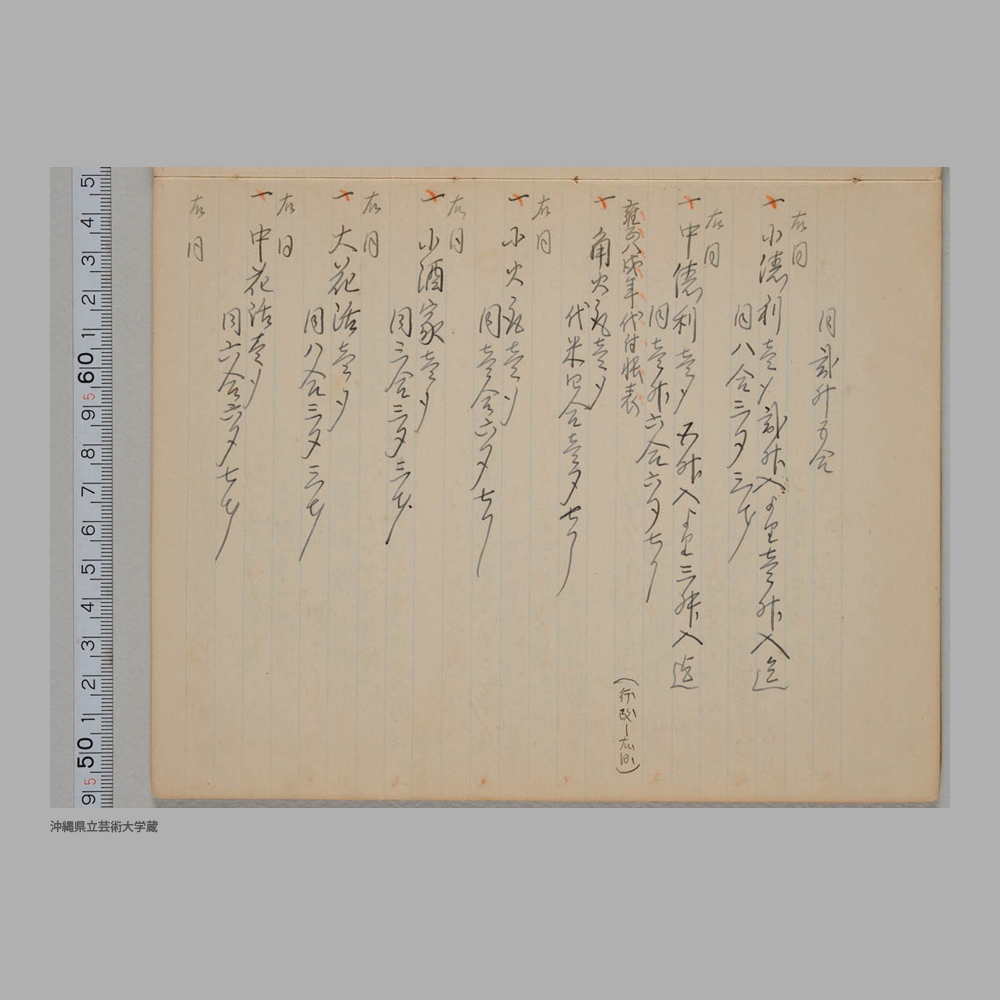 同弐升五合
右同
一 小徳利壱ツ 弐升入より壱升入迄
同八合三夕三才
右同
一 中徳利壱ツ 五升入より三升入迄
同壱升六合六夕七才
八戌年代付帳表
(行政ー右同)
一 角火取壱ツ
代米四合壱夕七才
右同
一 小火取壱ツ
同壱合六夕七才
右同
一 小酒家壱ツ
同三合三夕三才
右同
一 大花活壱ツ
同八合三夕三才
右同
一 中花活壱ツ
同六合六夕七才
右同
5 4 3 2 1 60 9 8 7 6 5 4 3 2 1 50 9
沖縄県立芸術大学蔵